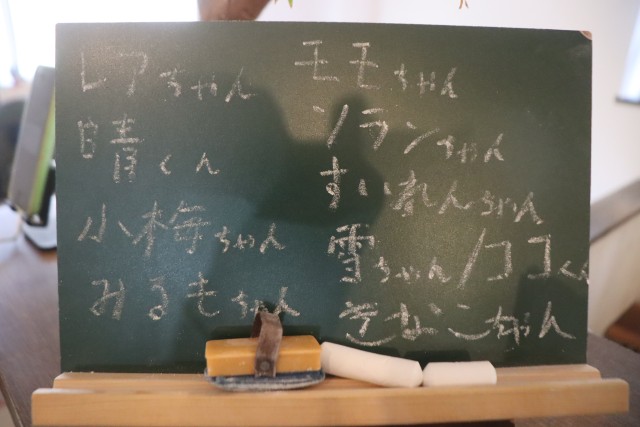 レアちゃん
晴くん
小梅ちゃん
みるもちゃん
モモちゃん
ソランちゃん
すいれんちゃん
雪ちゃん/ココくん
そなこちゃん